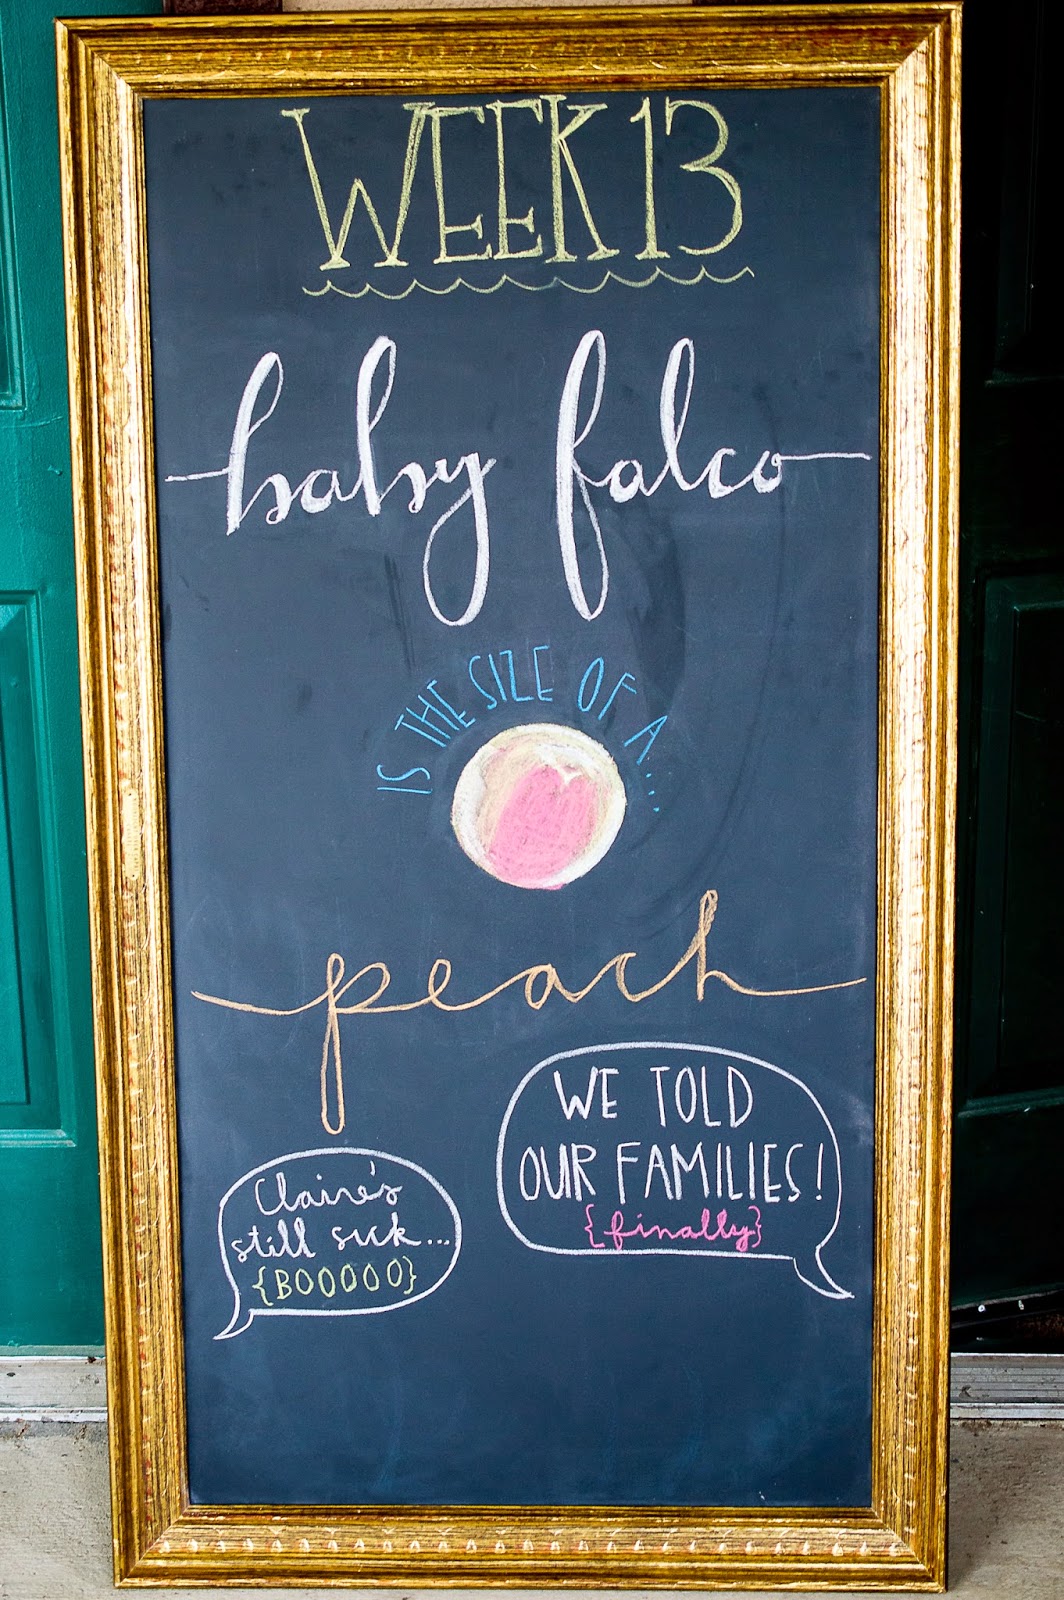 WEEK 13
baby falco
IS THE SIZE OF A...
peach
WE TOLD
OUR FAMILIES!
{finally}
Claire's
still sick...
{BOOOOO}